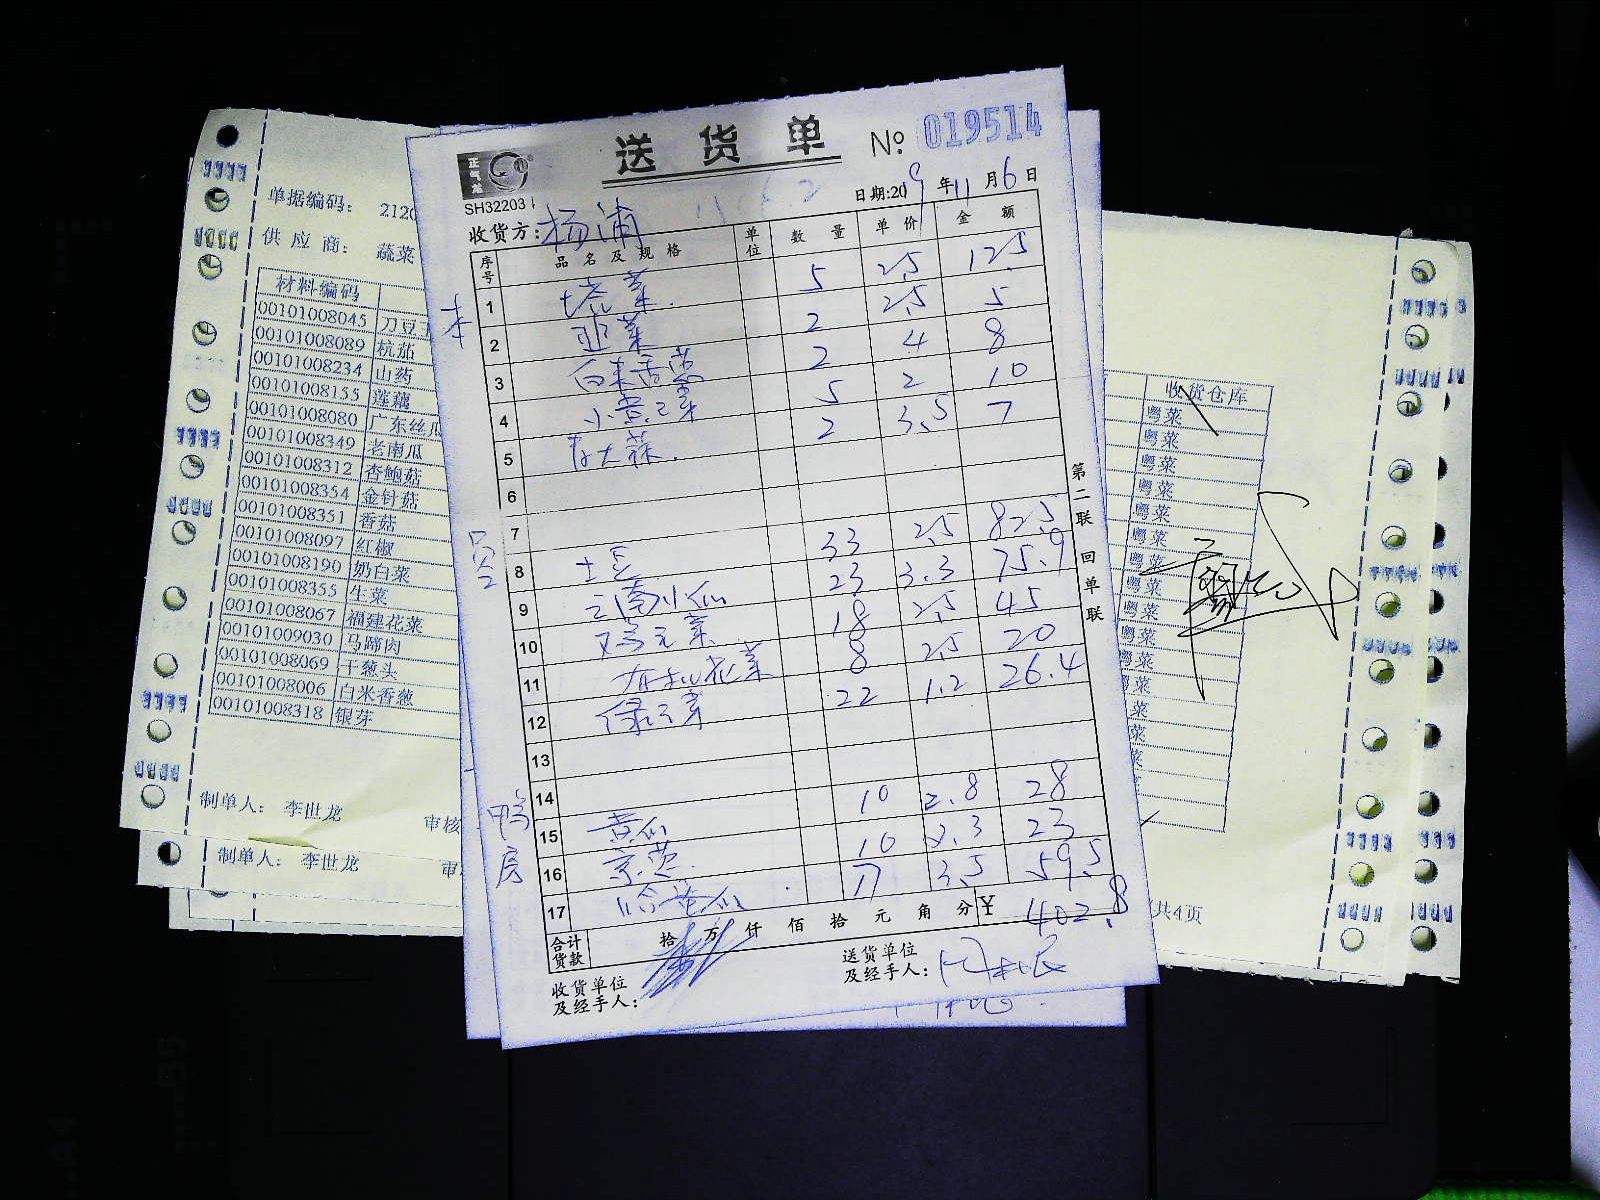 送货单 № 019514
正气龙
SH32203
日期:2019年11月6日
收货方:杨浦
序号 品名及规格 单位 数量 单价 金额
本
1 塔菜 5 2.5 12.5
2 韭菜 2 2.5 5
3 白米香葱 2 4 8
4 小黄芽 5 2 10
5 青大蒜 2 3.5 7
6
员
7
8 土豆 33 2.5 82.5
9 云南小瓜 23 3.3 75.9
10 18 2.5 45
11 有机花菜 8 2.5 20
12 绿豆芽 22 1.2 26.4
13
鸭房
14
15 黄瓜 10 2.8 28
16 京葱 10 2.3 23
17 哈密瓜 17 3.5 59.5
合计货款 拾 万 仟 佰 拾 元 角 分 ¥ 402.8
收货单位及经手人:
送货单位及经手人:
第二联 回单联
单据编码: 2120
供应商: 蔬菜
材料编码
00101008045 刀豆
00101008089 杭茄
00101008234 山药
00101008155 莲藕
00101008080 广东丝瓜
00101008349 老南瓜
00101008312 杏鲍菇
00101008354 金针菇
00101008351 香菇
00101008097 红椒
00101008190 奶白菜
00101008355 生菜
00101008067 福建花菜
00101009030 马蹄肉
00101008069 干葱头
00101008006 白米香葱
00101008318 银芽
制单人: 李世龙 审核
制单人: 李世龙 审
收货仓库
粤菜
粤菜
粤菜
粤菜
粤菜
粤菜
粤菜
粤菜
粤菜
粤菜
粤菜
粤菜
菜
菜
菜
共4页